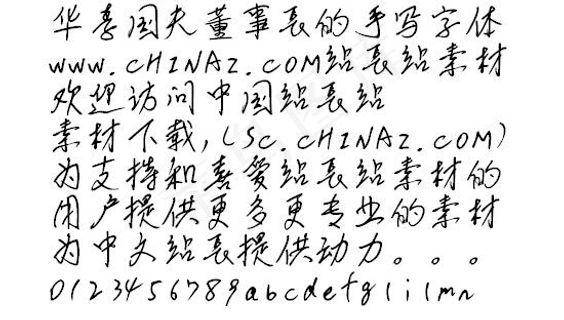 华喜国夫董事长的手写字体
www.cHINAZ.cOM站长站素材
欢迎访问中国站长站
素材下载,(Sc.cHINAZ.cOM)
为支持和喜爱站长站素材的
用户提供更多更专业的素材
为中文站长提供动力。。。
0123456789abcdefg